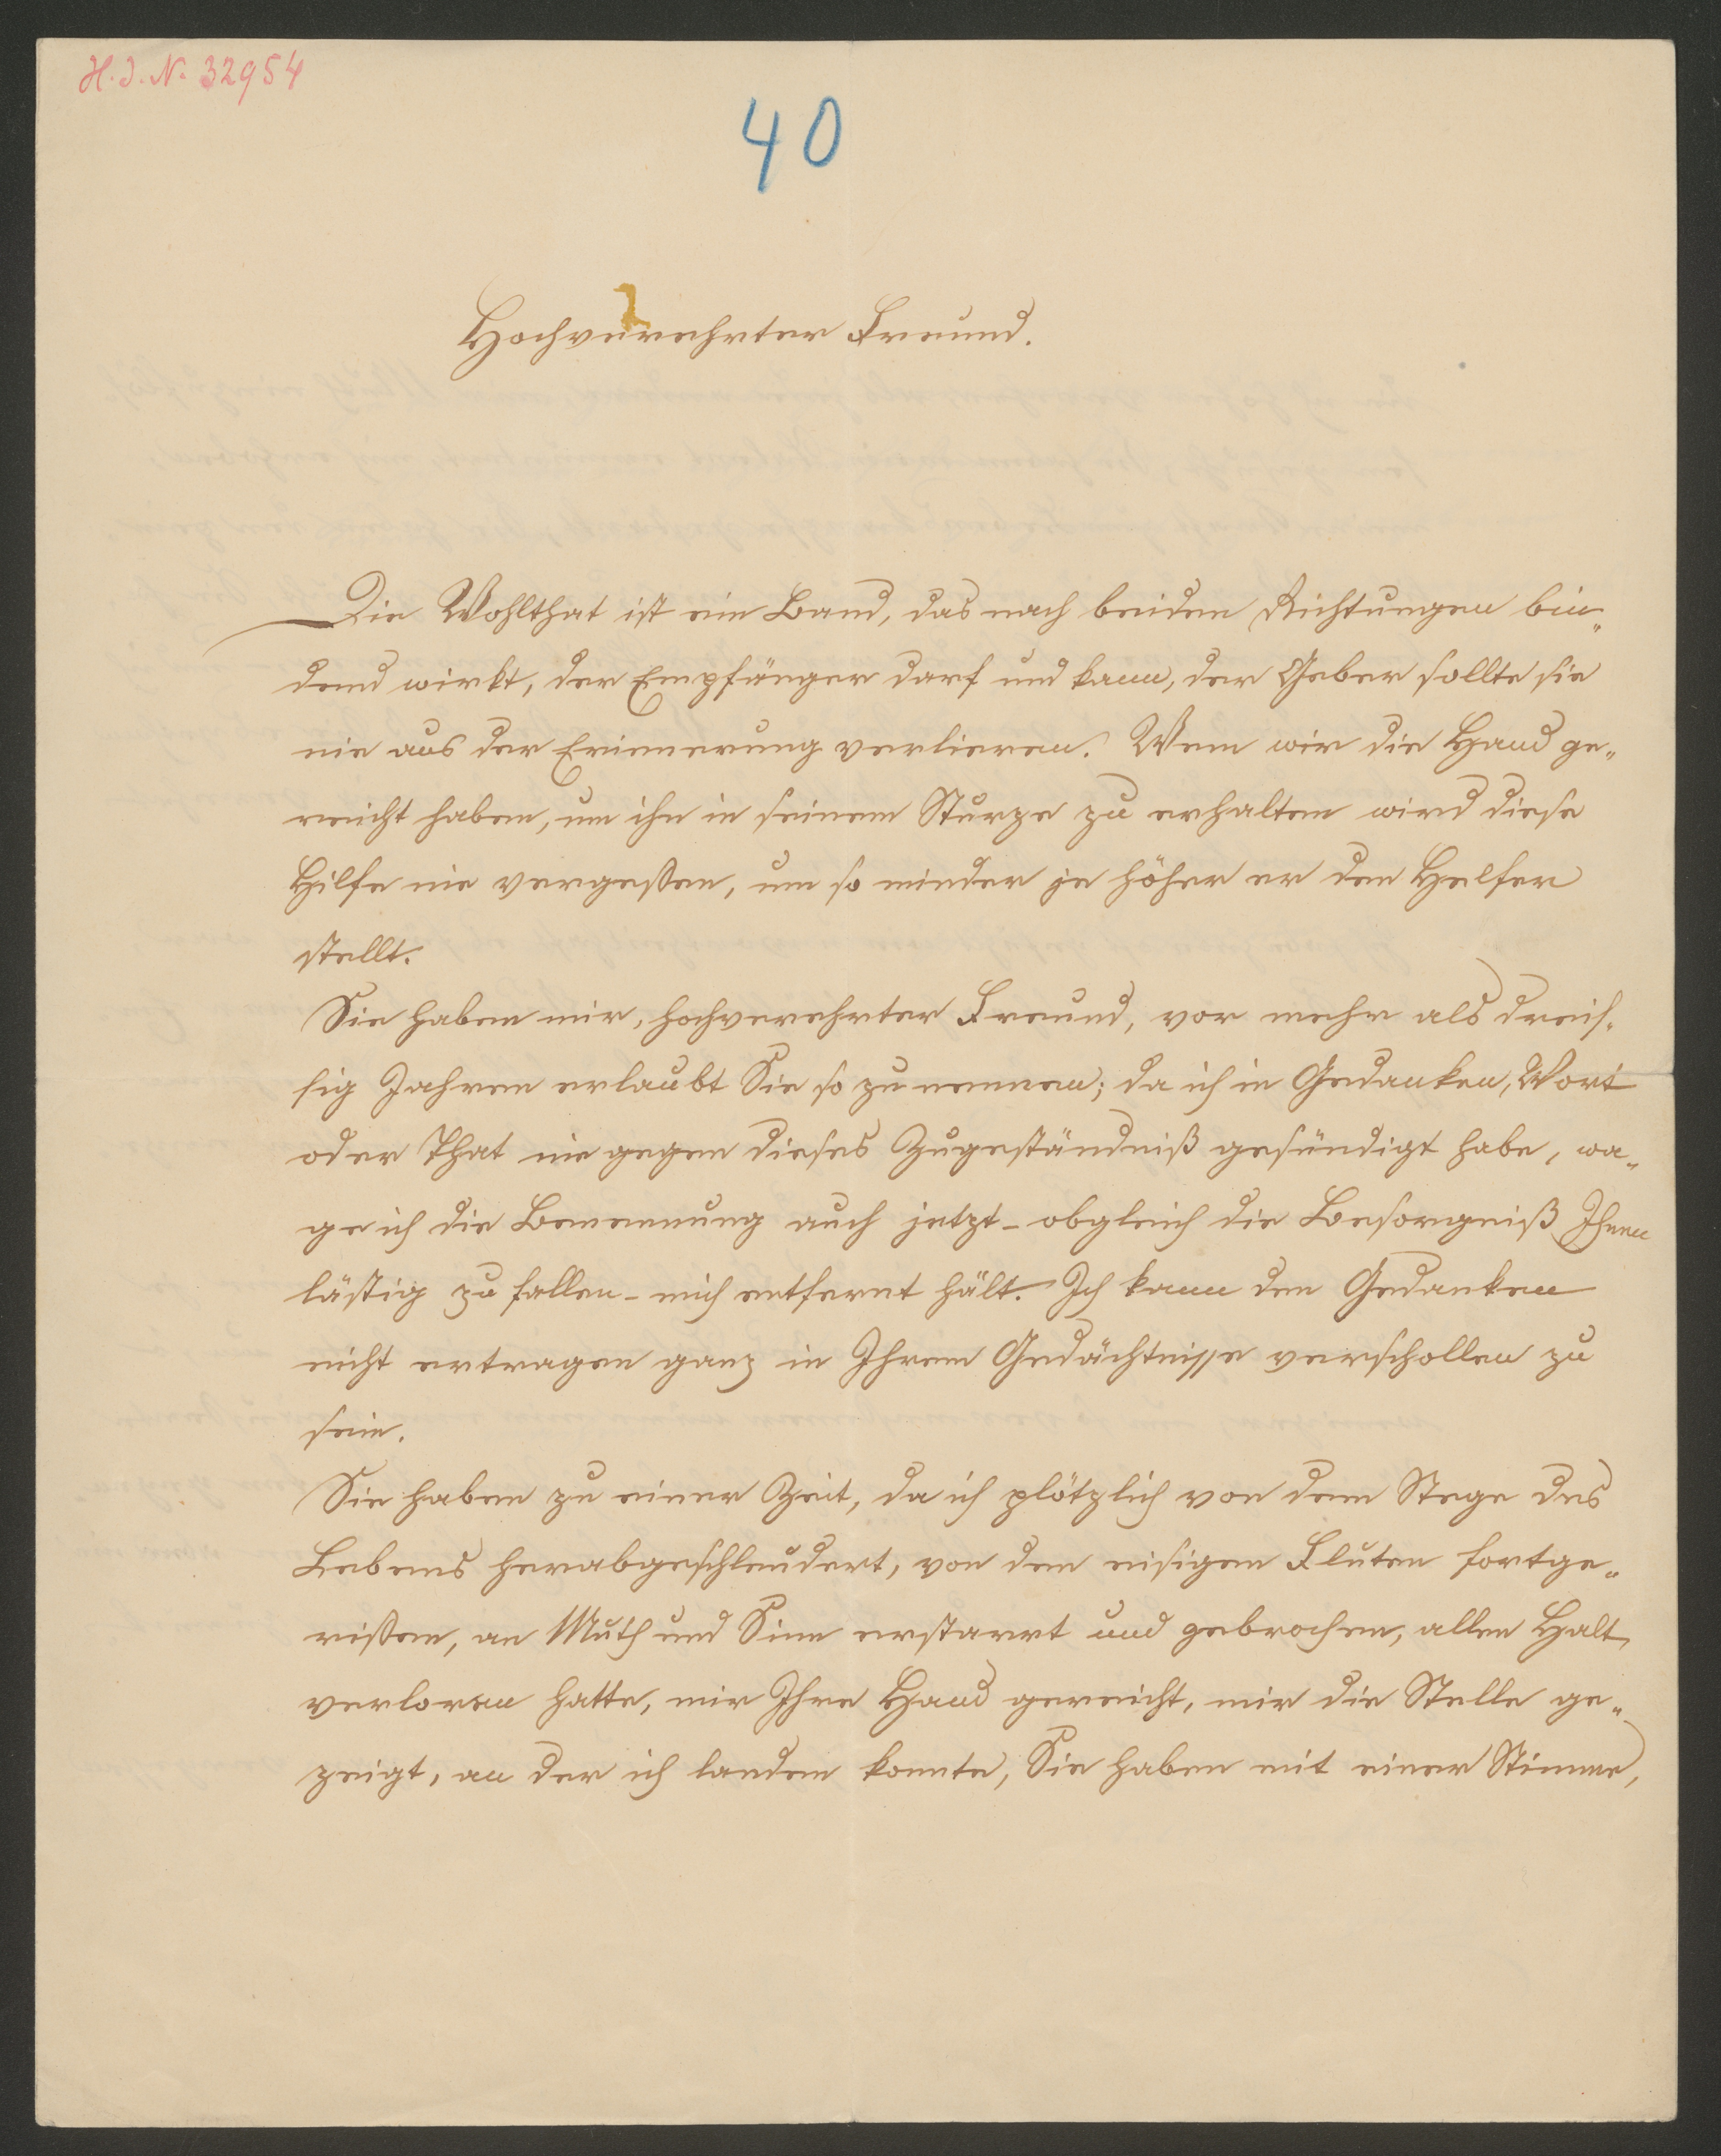 H. J. N. 32954
40
Hochverehrter Freund.
Die Wohlthat ist ein Band, das nach beiden Richtungen bin-
dend wirkt, der Empfänger darf und kann, der Geber sollte sie
nie aus der Erinnerung verlieren. Wem wir die Hand ge-
reicht haben, um ihn in seinem Sturze zu erhalten wird diese
Hilfe nie vergeßen, um so minder je höher er den Helfer
stellt.
Sie haben mir, hochverehrter Freund, vor mehr als dreis-
sig Jahren erlaubt Sie so zu nennen; da ich in Gedanken, Wort
oder That nie gegen dieses Zugeständniß gesündigt habe, wa-
ge ich die Benennung auch jetzt – obgleich die Besorgniß Ihnen
lästig zu fallen – mich entfernt hält. Ich kann den Gedanken
nicht ertragen ganz in Ihrem Gedächtnisse verschollen zu
sein.
Sie haben zu einer Zeit, da ich plötzlich von dem Stege des
Lebens herabgeschleudert, von den eisigen Fluten fortge-
rißen, an Muth und Sinn erstarrt und gebrochen, allen Halt
verloren hatte, mir Ihre Hand gereicht, mir die Stelle ge-
zeigt, an der ich landen konnte, Sie haben mit einer Stimme,